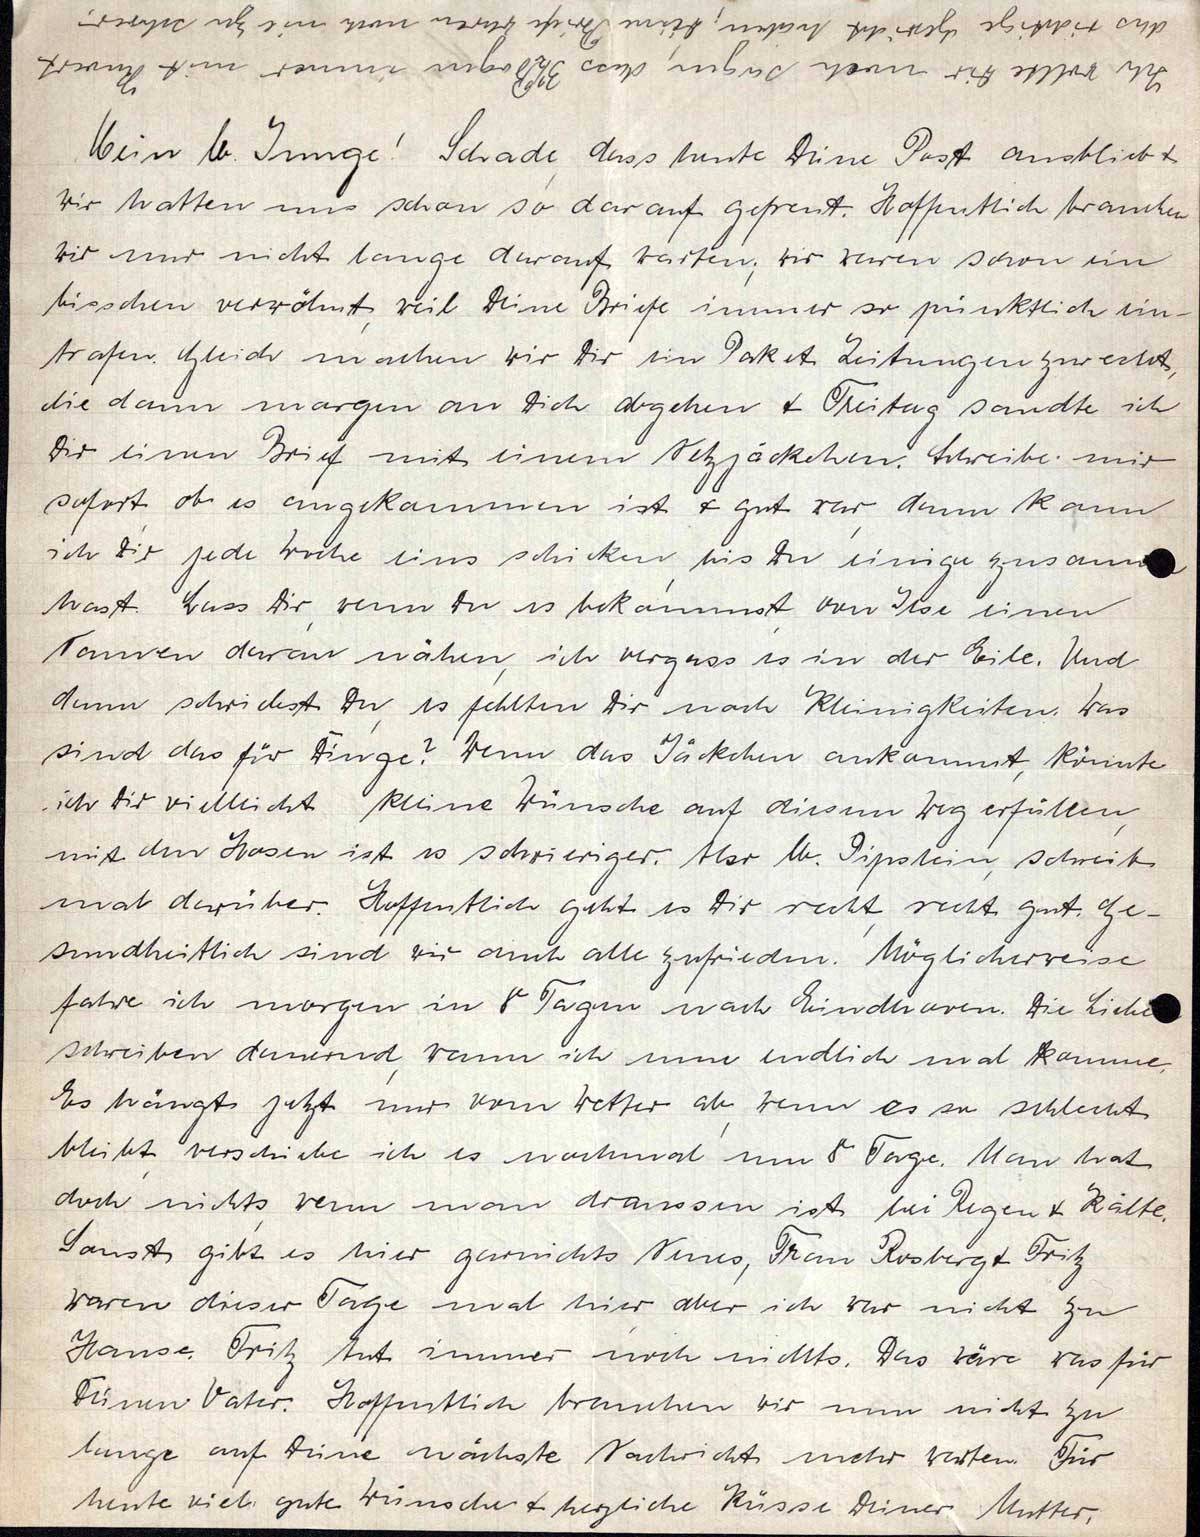 Ich wollte Dir noch sagen, dass Bogen immer mit Kuvert
das richtige Gewicht haben, Deine Briefe waren noch nie zu schwer.
Mein lb. Junge! Schade, dass heute Deine Post ausblieb &
wir hatten uns schon so darauf gefreut. Hoffentlich brauchen
wir nur nicht lange darauf warten, wir waren schon ein
bisschen verwöhnt, weil Deine Briefe immer so pünktlich ein-
trafen. Gleich machen wir Dir ein Paket Zeitungen zurecht,
die dann morgen an Dich abgehen & Freitag sandte ich
Dir einen Brief mit einem Netzjäckchen. Schreibe mir
sofort ob es angekommen ist & gut war, dann kann
ich Dir jede Woche eins schicken, bis Du einige zusammen
hast. Lass Dir, wenn Du es bekommst, von Ilse einen
Namen daran nähen, ich vergass es in der Eile. Und
dann schriebst Du, es fehlten Dir noch Kleinigkeiten. Was
sind das für Dinge? Wenn das Jäckchen ankommt, könnte
ich Dir vielleicht kleine Wünsche auf diesem Weg erfüllen,
mit den Hosen ist es schwieriger. Also lb. Pipslein, schreib
mal darüber. Hoffentlich geht es Dir recht, recht gut. Ge-
sundheitlich sind wir auch alle zufrieden. Möglicherweise
fahre ich morgen in 8 Tagen nach Eindhoven. Die Lieben
schreiben dauernd, wann ich nun endlich mal komme.
Es hängt jetzt nur vom Wetter ab, wenn es so schlecht
bleibt, verschiebe ich es nochmal um 8 Tage. Man hat
doch nichts, wenn man draussen ist bei Regen & Kälte.
Sonst gibt es hier garnichts Neues, Frau Rosberg & Fritz
waren dieser Tage mal hier, aber ich war nicht zu
Hause. Fritz tut immer noch nichts. Das wäre was für
Deinen Vater. Hoffentlich brauchen wir nun nicht zu
lange auf Deine nächste Nachricht mehr warten. Für
heute viele gute Wünsche & herzliche Küsse Deiner Mutter.